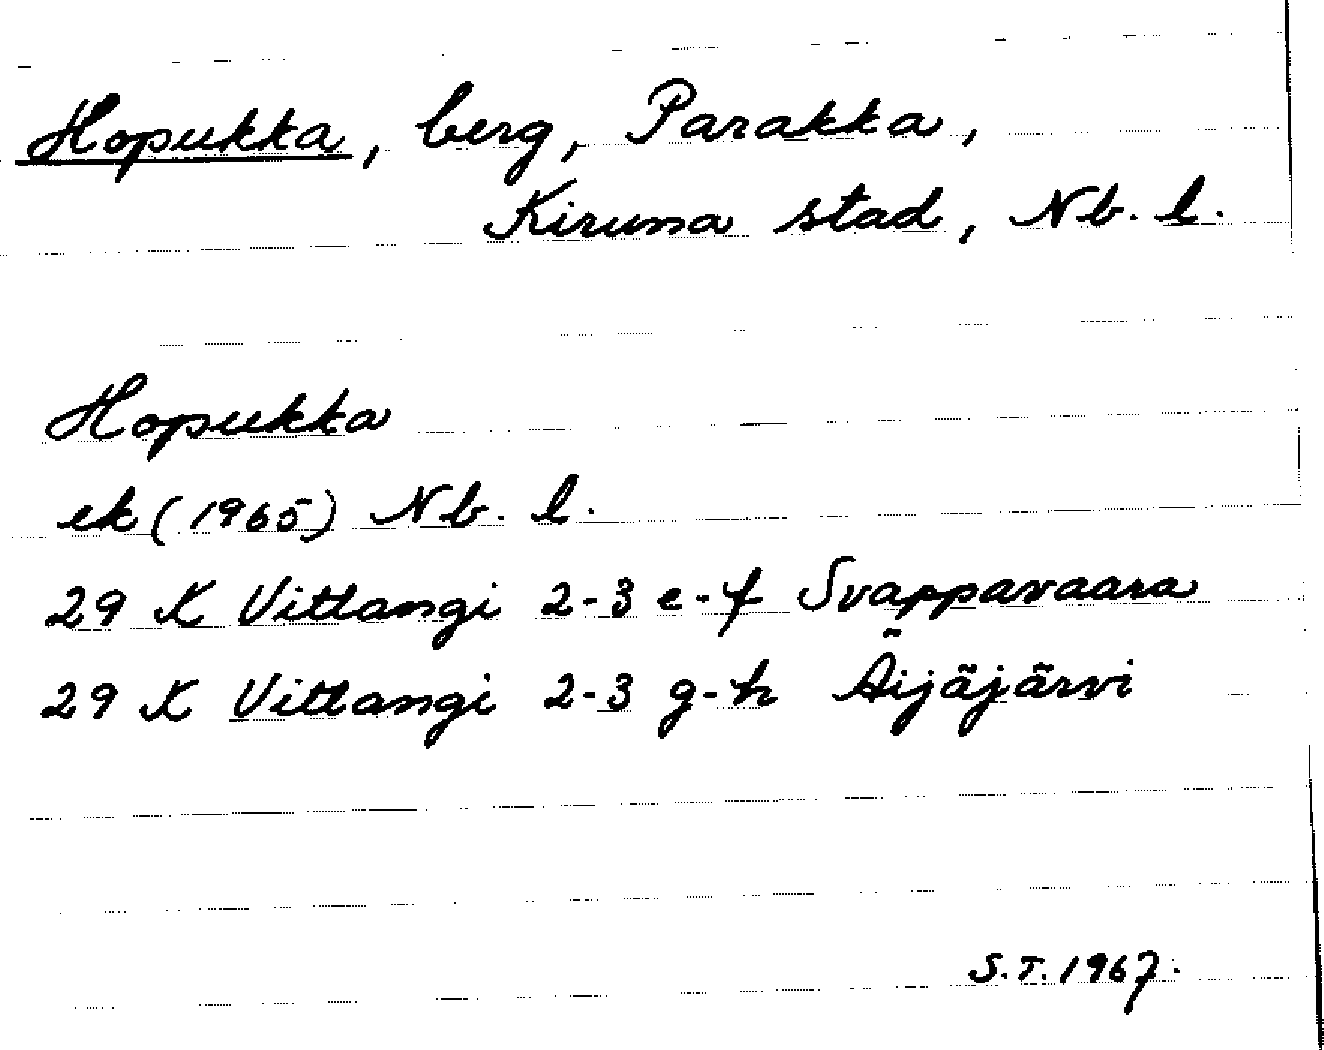 Hopukka, berg, Parakka,
Kiruna stad, Nb. l.
Hopukka
ek (1965) Nb. l.
29 K Vittangi 2-3 e-f Svappavaara
29 K Vittangi 2-3 g-h Äijäjärvi
S.T. 1967.